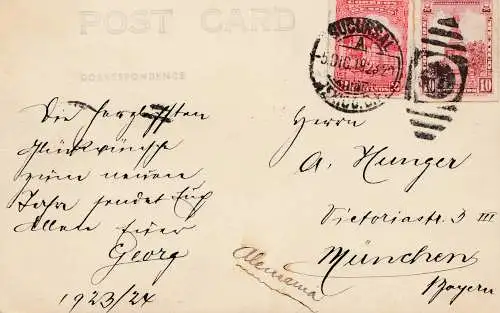 POST CARD
CORRESPONDENCE
SUCURSAL
A
5 DIC 1923
MEXICO, D.F.
10
Die herzlichsten
Glückwünsche
zum neuen
Jahre sendet Euch
Allen Euer
Georg
1923/24
Herrn
A. Hunger
Victoriastr. 3 III
München
Bayern
Alemania